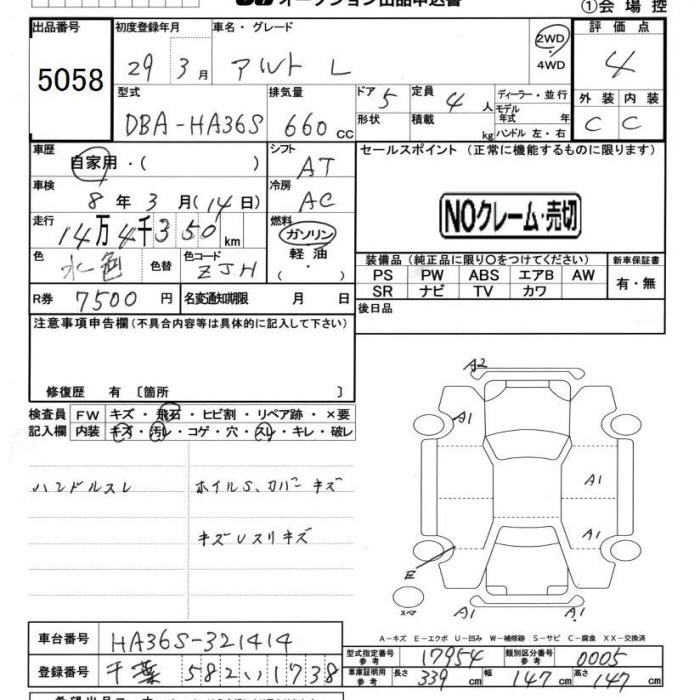 オークション出品申込書
①会場控
出品番号 初度登録年月 車名・グレード 2WD・4WD 評価点
5058 29 3月 アルト L 4
型式 排気量 ドア 5 定員 4人 ディーラー・並行 外装 内装
DBA-HA36S 660cc 形状 積載 kg モデル年式 年 ハンドル 左・右 C C
車歴 自家用・( ) シフト AT セールスポイント (正常に機能するものに限ります)
車検 8年 3月(14日) 冷房 AC
NOクレーム・売切
走行 14万4千350km 燃料 ガソリン 軽油
色 水色 色替 色コード ZJH
装備品 (純正品に限り〇をつけてください) 新車保証書
PS PW ABS エアB AW 有・無
SR ナビ TV カワ
R券 7500円 名変通知期限 月 日 後日品
注意事項申告欄(不具合内容等は具体的に記入して下さい)
修復歴 有 〔箇所 〕
検査員 FW キズ・飛石・ヒビ割・リペア跡・×要
記入欄 内装 キズ・汚レ・コゲ・穴・スレ・キレ・破レ
ハンドルスレ ホイルS、カバーキズ
キズUスリキズ
A2
A1
A1
A1
E
スペア
A1 A1
A-キズ E-エクボ U-凹み W-補修跡 S-サビ C-腐食 XX-交換済
車台番号 HA36S-321414
型式指定番号 参考 17954 類別区分番号 参考 0005
登録番号 千葉 582 い 1738
車庫証明用 参考 長さ 339cm 幅 147cm 高さ 147cm